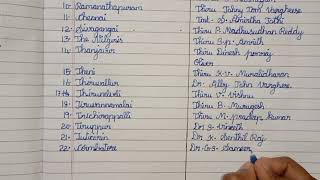 10. Ramanathapuram Thiru Johny Tom Varghese
11. Chennai Tmt. S. Amirtha Jothi
12. Sivagangai Thiru P. Madhusudhan Reddy
13. The Nilgiris Thiru S.P. Amrith
14. Thanjavur Thiru Dinesh ponraj
Oliver
15. Theni Thiru K.V. Muralidharan
16. Thiruvallur Dr. Alby John Varghese
17. Thirunelveli Thiru V. Vishnu
18. Tiruvannamalai Thiru B. Murugesh
19. Tiruchirappalli Thiru M. pradeep kumar
20. Tiruppur Dr S. Vineeth
21. Tuticorin Dr. K. Senthil Raj
22. Coimbatore Dr. G.S. Sameer